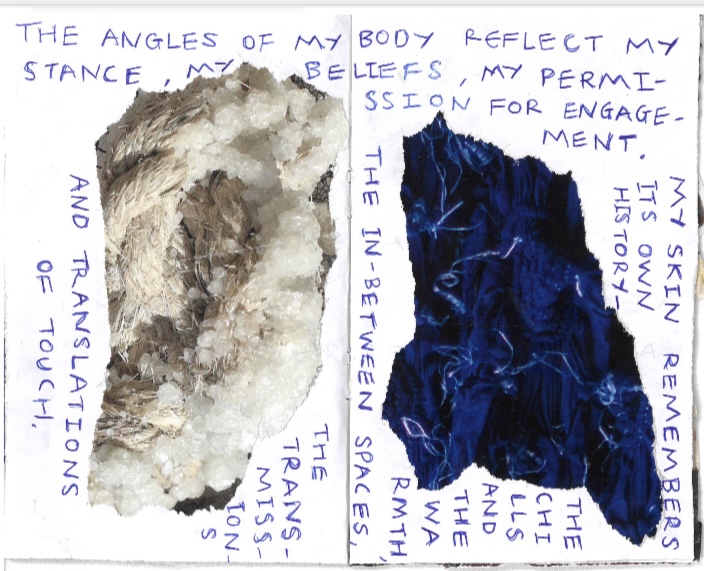 THE ANGLES OF MY BODY REFLECT MY
STANCE, MY BELIEFS, MY PERMI-
SSION FOR ENGAGE-
MENT.
MY SKIN REMEMBERS
ITS OWN
HISTORY-
THE
CHI
LLS
AND
THE
WA
RMTH,
THE IN-BETWEEN SPACES,
THE
TRANS-
MISS-
ION-
S
AND TRANSLATIONS
OF TOUCH.